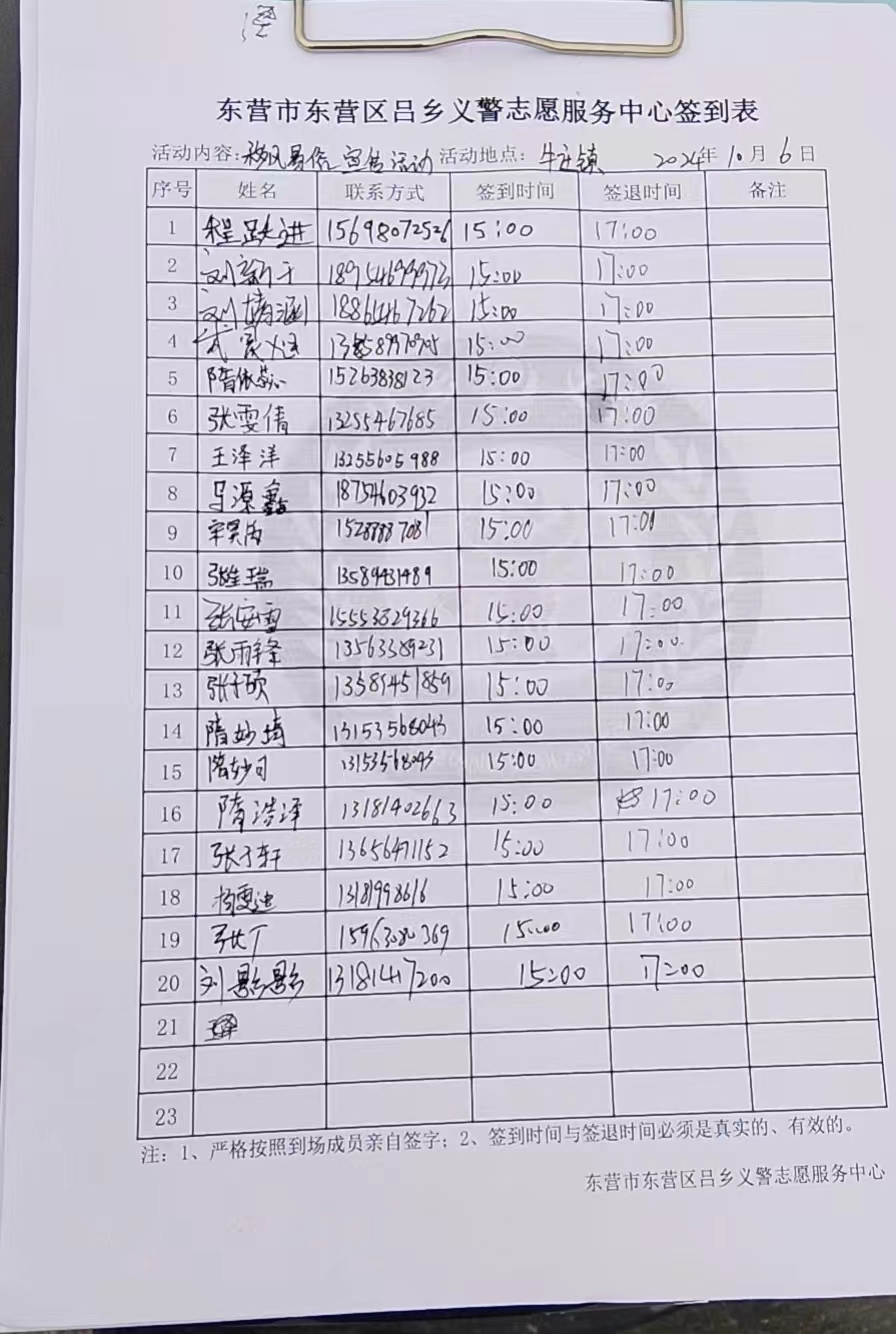 东营市东营区吕乡义警志愿服务中心签到表
活动内容:移风易俗宣传活动 活动地点: 牛庄镇 2024年10月6日
序号 姓名 联系方式 签到时间 签退时间 备注
1 程跃进 15698072526 15:00 17:00
2 18954699973 15:00 17:00
3 刘靖涵 18864467262 15:00 17:00
4 15:00 17:00
5 15263838123 15:00 17:00
6 张雯倩 13255467685 15:00 17:00
7 王泽洋 13255605988 15:00 17:00
8 马源鑫 18754603932 15:00 17:00
9 15:00 17:00
10 15:00 17:00
11 张安雪 15553829366 15:00 17:00
12 张雨锋 13563389231 15:00 17:00
13 张子硕 13589451859 15:00 17:00
14 隋妙埼 13153568043 15:00 17:00
15 13153568043 15:00 17:00
16 隋浩泽 13181402663 15:00 17:00
17 张子轩 13656471152 15:00 17:00
18 15:00 17:00
19 15:00 17:00
20 刘影影 13181417200 15:00 17:00
21
22
23
注: 1、严格按照到场成员亲自签字; 2、签到时间与签退时间必须是真实的、有效的。
东营市东营区吕乡义警志愿服务中心